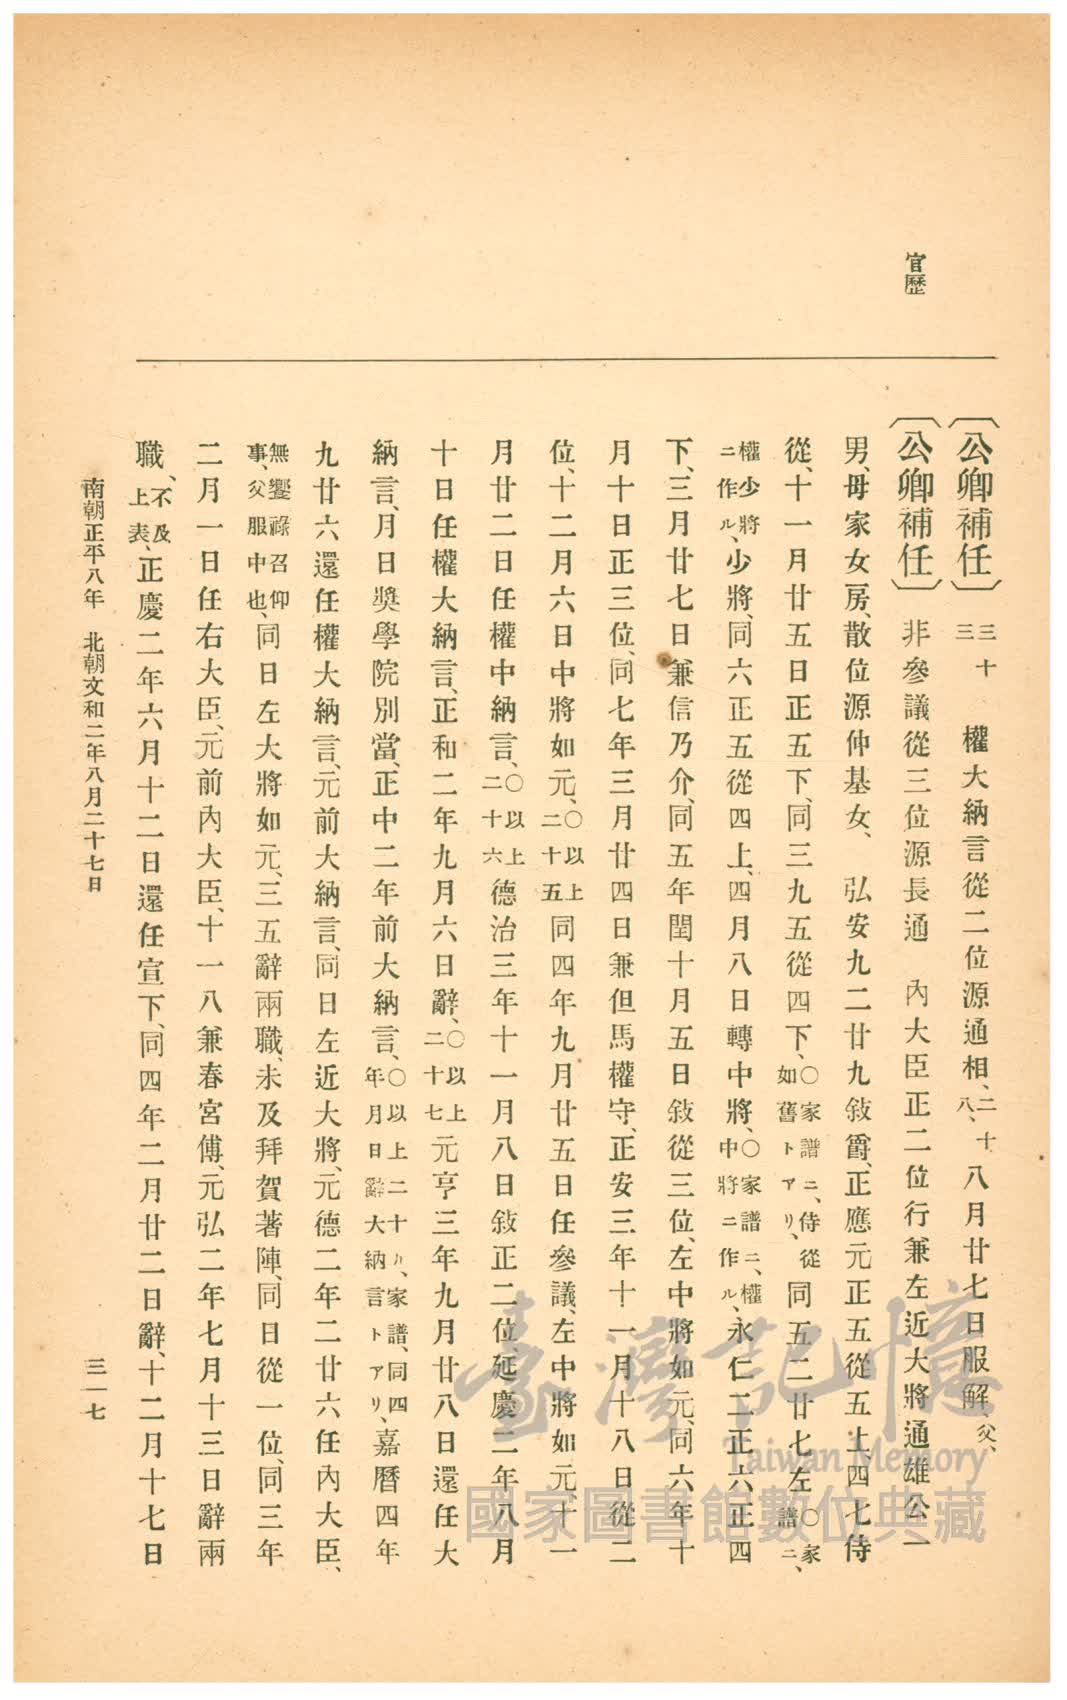 官歷
〔公卿補任〕三十三 權大納言從二位源通相、二十八、八月廿七日服解、父、
〔公卿補任〕非參議從三位源長通 內大臣正二位行兼左近大將通雄公一
男、母家女房、散位源仲基女、 弘安九二廿九敍爵、正應元正五從五上、四七侍
從、十一月廿五日正五下、同三九五從四下、〇家譜ニ、侍從如舊トアリ、同五二廿七左〇家譜ニ、
權少將ニ作ル、少將、同六正五從四上、四月八日轉中將、〇家譜ニ、權中將ニ作ル、永仁二正六正四
下、三月廿七日兼信乃介、同五年閏十月五日敍從三位、左中將如元、同六年十
月十日正三位、同七年三月廿四日兼但馬權守、正安三年十一月十八日從二
位、十二月六日中將如元、〇以上二十五同四年九月廿五日任參議、左中將如元、十一
月廿二日任權中納言、〇以上二十六德治三年十一月八日敍正二位、延慶二年八月
十日任權大納言、正和二年九月六日辭、〇以上二十七元亨三年九月廿八日還任大
納言、月日奬學院別當、正中二年前大納言、〇以上二十八、家譜、同四年月日辭大納言トアリ、嘉曆四年
九廿六還任權大納言、元前大納言、同日左近大將、元德二年二廿六任內大臣、
無饗祿召仰事、父服中也、同日左大將如元、三五辭兩職、未及拜賀著陣、同日從一位、同三年
二月一日任右大臣、元前內大臣、十一八兼春宮傅、元弘二年七月十三日辭兩
職、不及上表、正慶二年六月十二日還任宣下、同四年二月廿二日辭、十二月十七日
南朝正平八年 北朝文和二年八月二十七日
三一七
臺灣記憶
Taiwan Memory
國家圖書館數位典藏